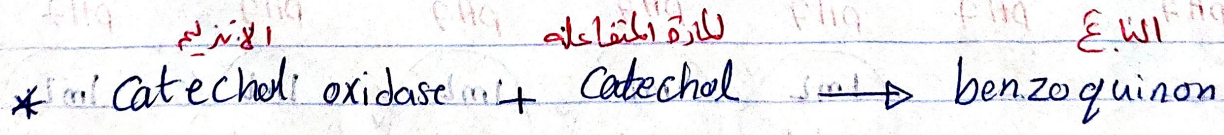 الانزيم للمادة المتفاعلة الناتج
* Catechol oxidase + Catechol → benzoquinon